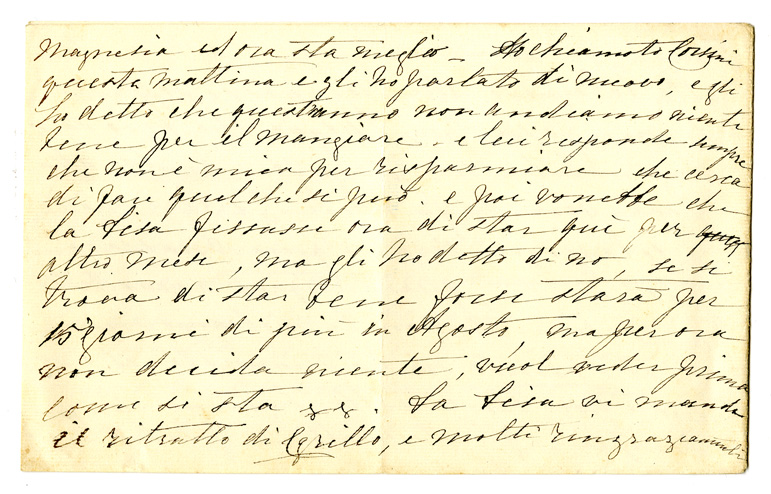 magnesia ed ora sta meglio – Ho chiamato Corsini
questa mattina e gli ho parlato di nuovo, e gli
ho detto che quest'anno non andiamo niente
bene per il mangiare. e lui risponde sempre
che non è mica per risparmiare che cerca
di fare quel che si può. e poi vorrebbe che
la Lisa fissasse ora di star qui per
altro mese, ma gli ho detto di no, se si
trova di star bene forse starà per
15 giorni di più in Agosto, ma per ora
non decida niente, vuol veder prima
come si sta xx. La Lisa vi manda
il ritratto di Grillo, e molti ringraziamenti